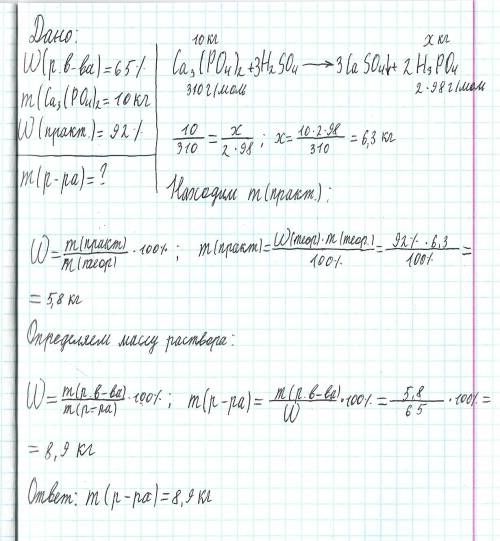 Дано:
W(р.в-ва)=65%
m(Ca₃(PO₄)₂=10кг
W(практ.)=92%
m(р-ра)=?
10кг x кг
Ca₃(PO₄)₂+3H₂SO₄→3CaSO₄↓+2H₃PO₄
310г/моль 2·98г/моль
10/310=x/2·98; x=10·2·98/310=6,3 кг
Находим m(практ.):
W=m(практ)/m(теор)·100%; m(практ)=W(теор)·m(теор.)/100%=92%·6,3/100%=
=5,8кг
Определяем массу раствора:
W=m(р.в-ва)/m(р-ра)·100%; m(р-ра)=m(р.в-ва)/W·100%=5,8/65·100%=
=8,9кг
Ответ: m(р-ра)=8,9кг